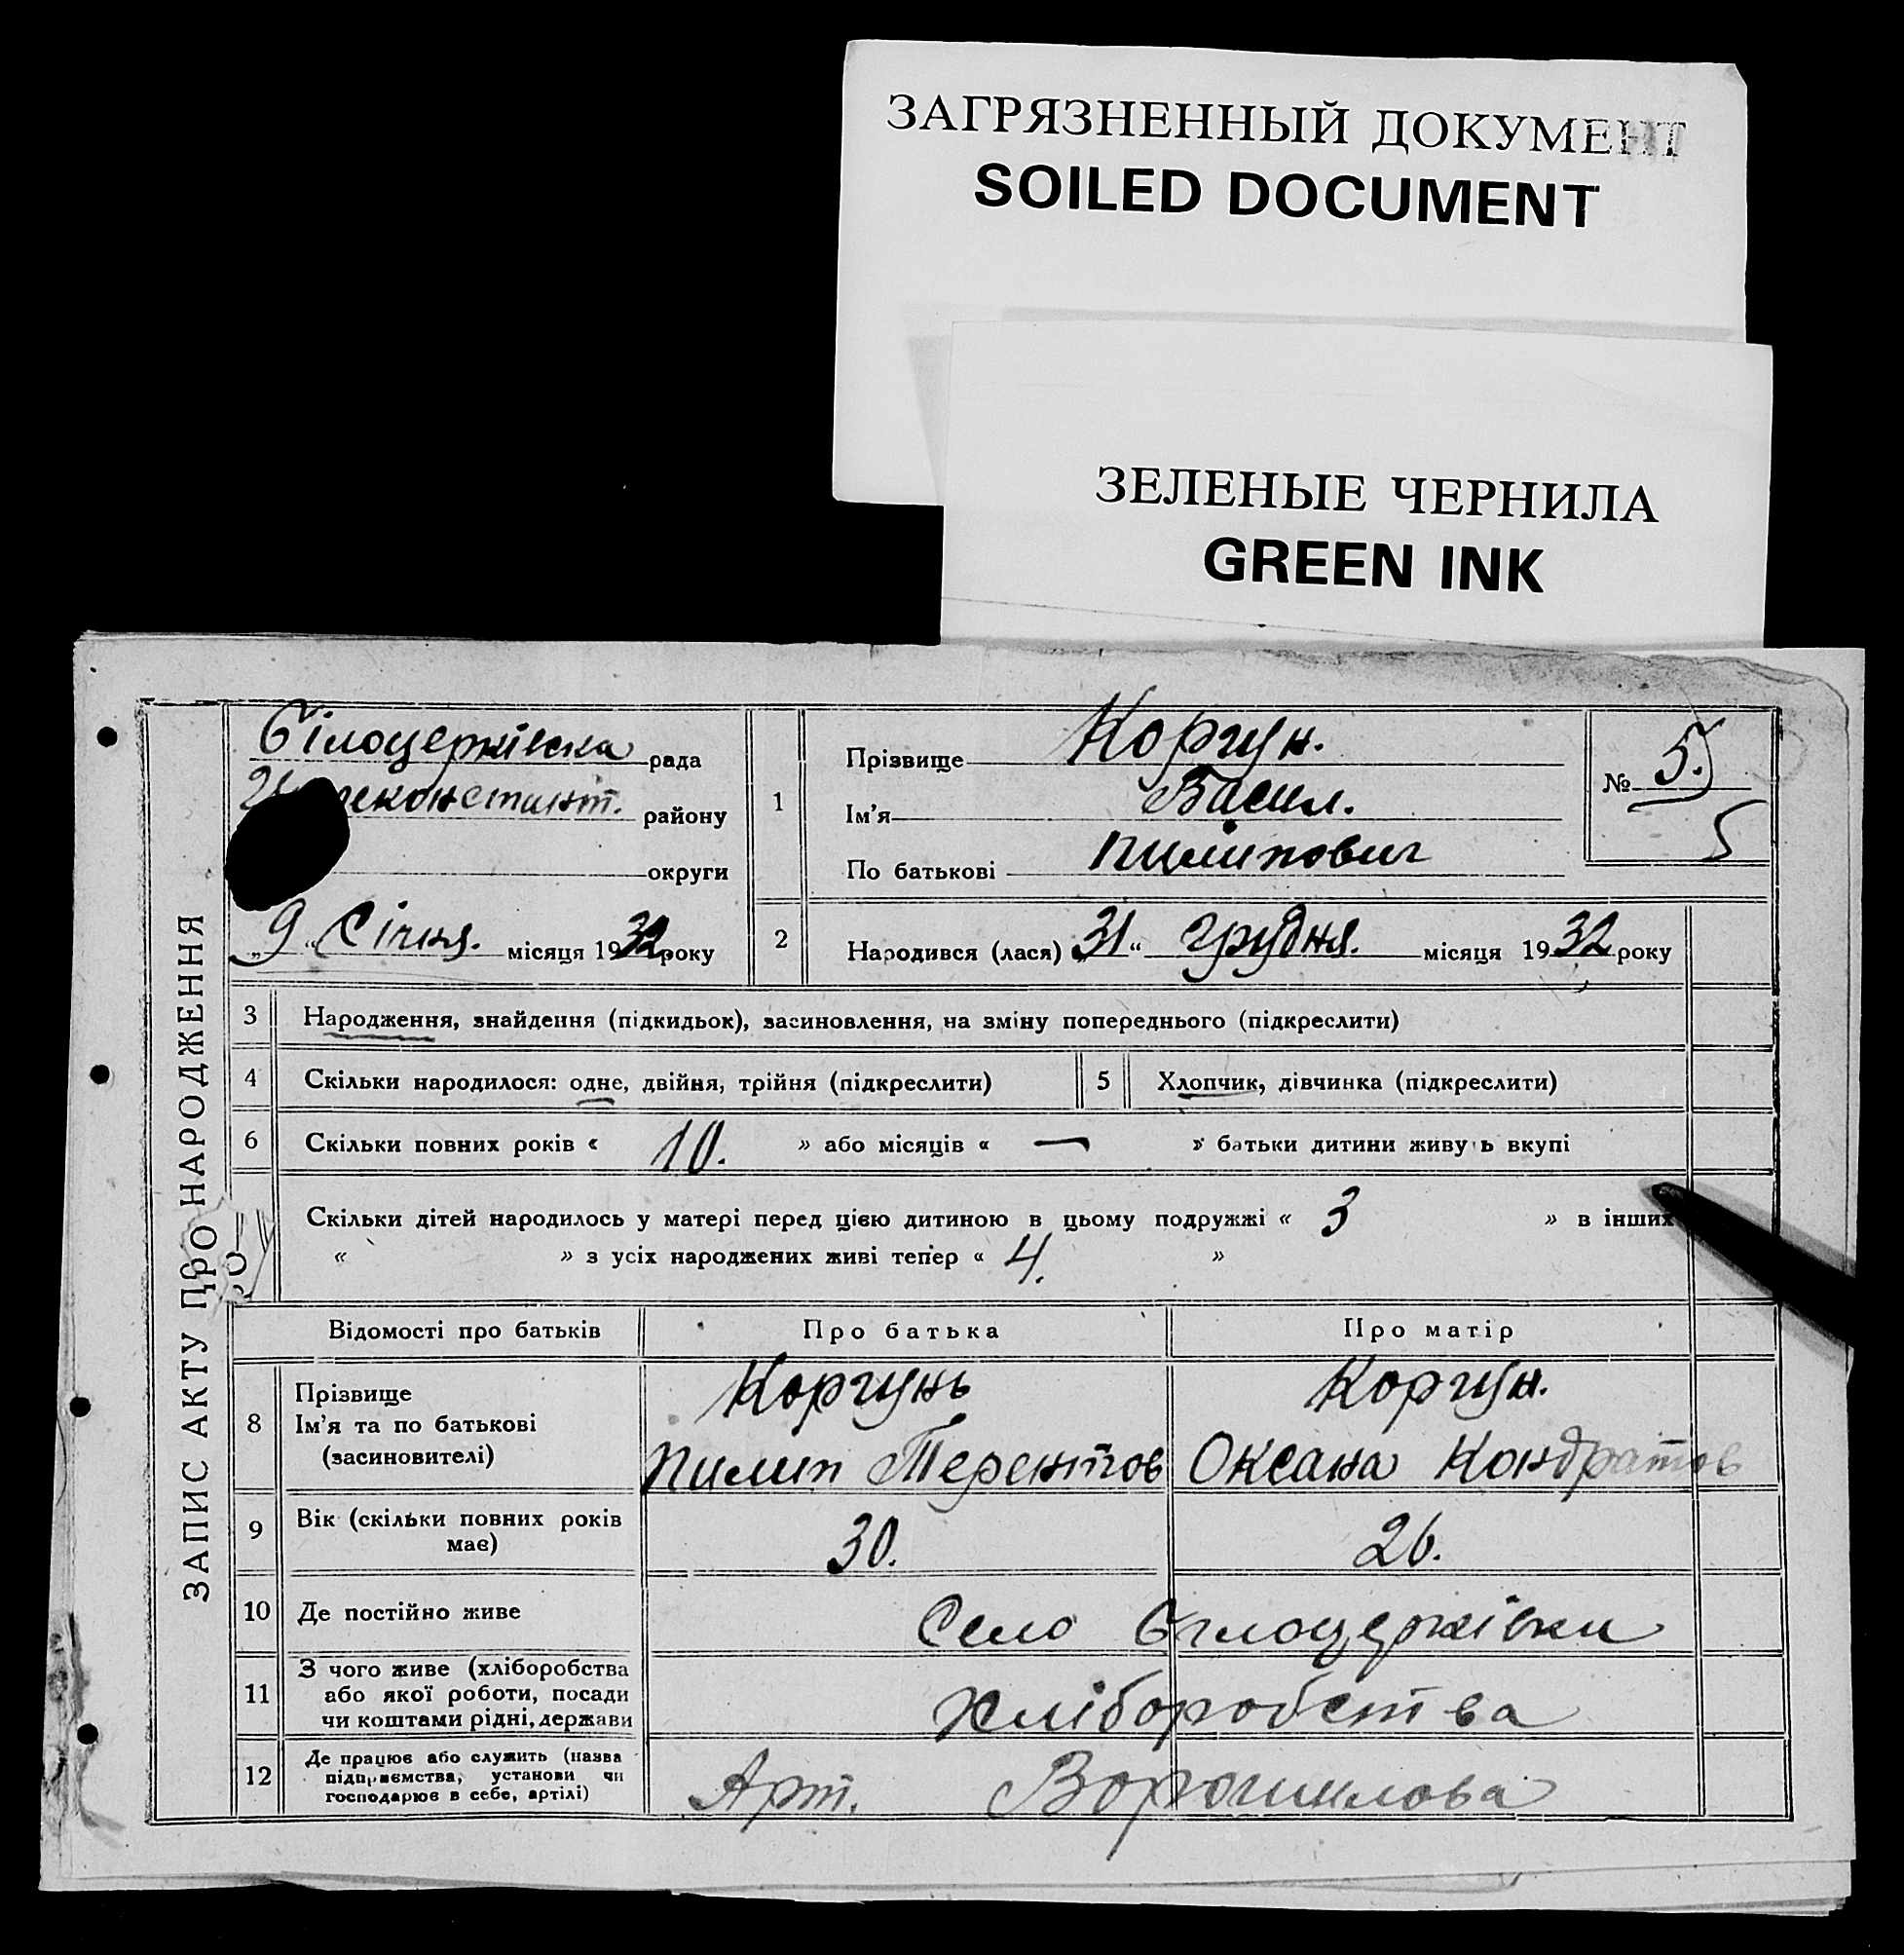 ЗАГРЯЗНЕННЫЙ ДОКУМЕНТ
SOILED DOCUMENT
ЗЕЛЕНЫЕ ЧЕРНИЛА
GREEN INK
ЗАПИС АКТУ ПРО НАРОДЖЕННЯ
Білоцерківска рада
району
округи
„9“ Січня. місяця 1932 року
1
Прізвище Коргун.
Ім'я Васил.
По батькові Пилипович
№ 5.
5
2
Народився (лася) „31“ Грудня. місяця 1932 року
3 Народження, знайдення (підкидьок), засиновлення, на зміну попереднього (підкреслити)
4 Скільки народилося: одне, двійня, трійня (підкреслити)
5 Хлопчик, дівчинка (підкреслити)
6 Скільки повних років « 10. » або місяців « — » батьки дитини живуть вкупі
Скільки дітей народилось у матері перед цією дитиною в цьому подружжі « 3 » в інших
« » з усіх народжених живі тепер « 4. »
Відомості про батьків Про батька Про матір
8 Прізвище
Ім'я та по батькові
(засиновителі)
Коргунь
Пилип Терентов
Коргун.
Оксана Кондратов
9 Вік (скільки повних років
має)
30. 26.
10 Де постійно живе Село Білоцерківки
11 З чого живе (хліборобства
або якої роботи, посади
чи коштами рідні, держави
Хліборобства
12 Де працює або служить (назва
підприємства, установи чи
господарює в себе, артілі)
Арт. Ворошилова